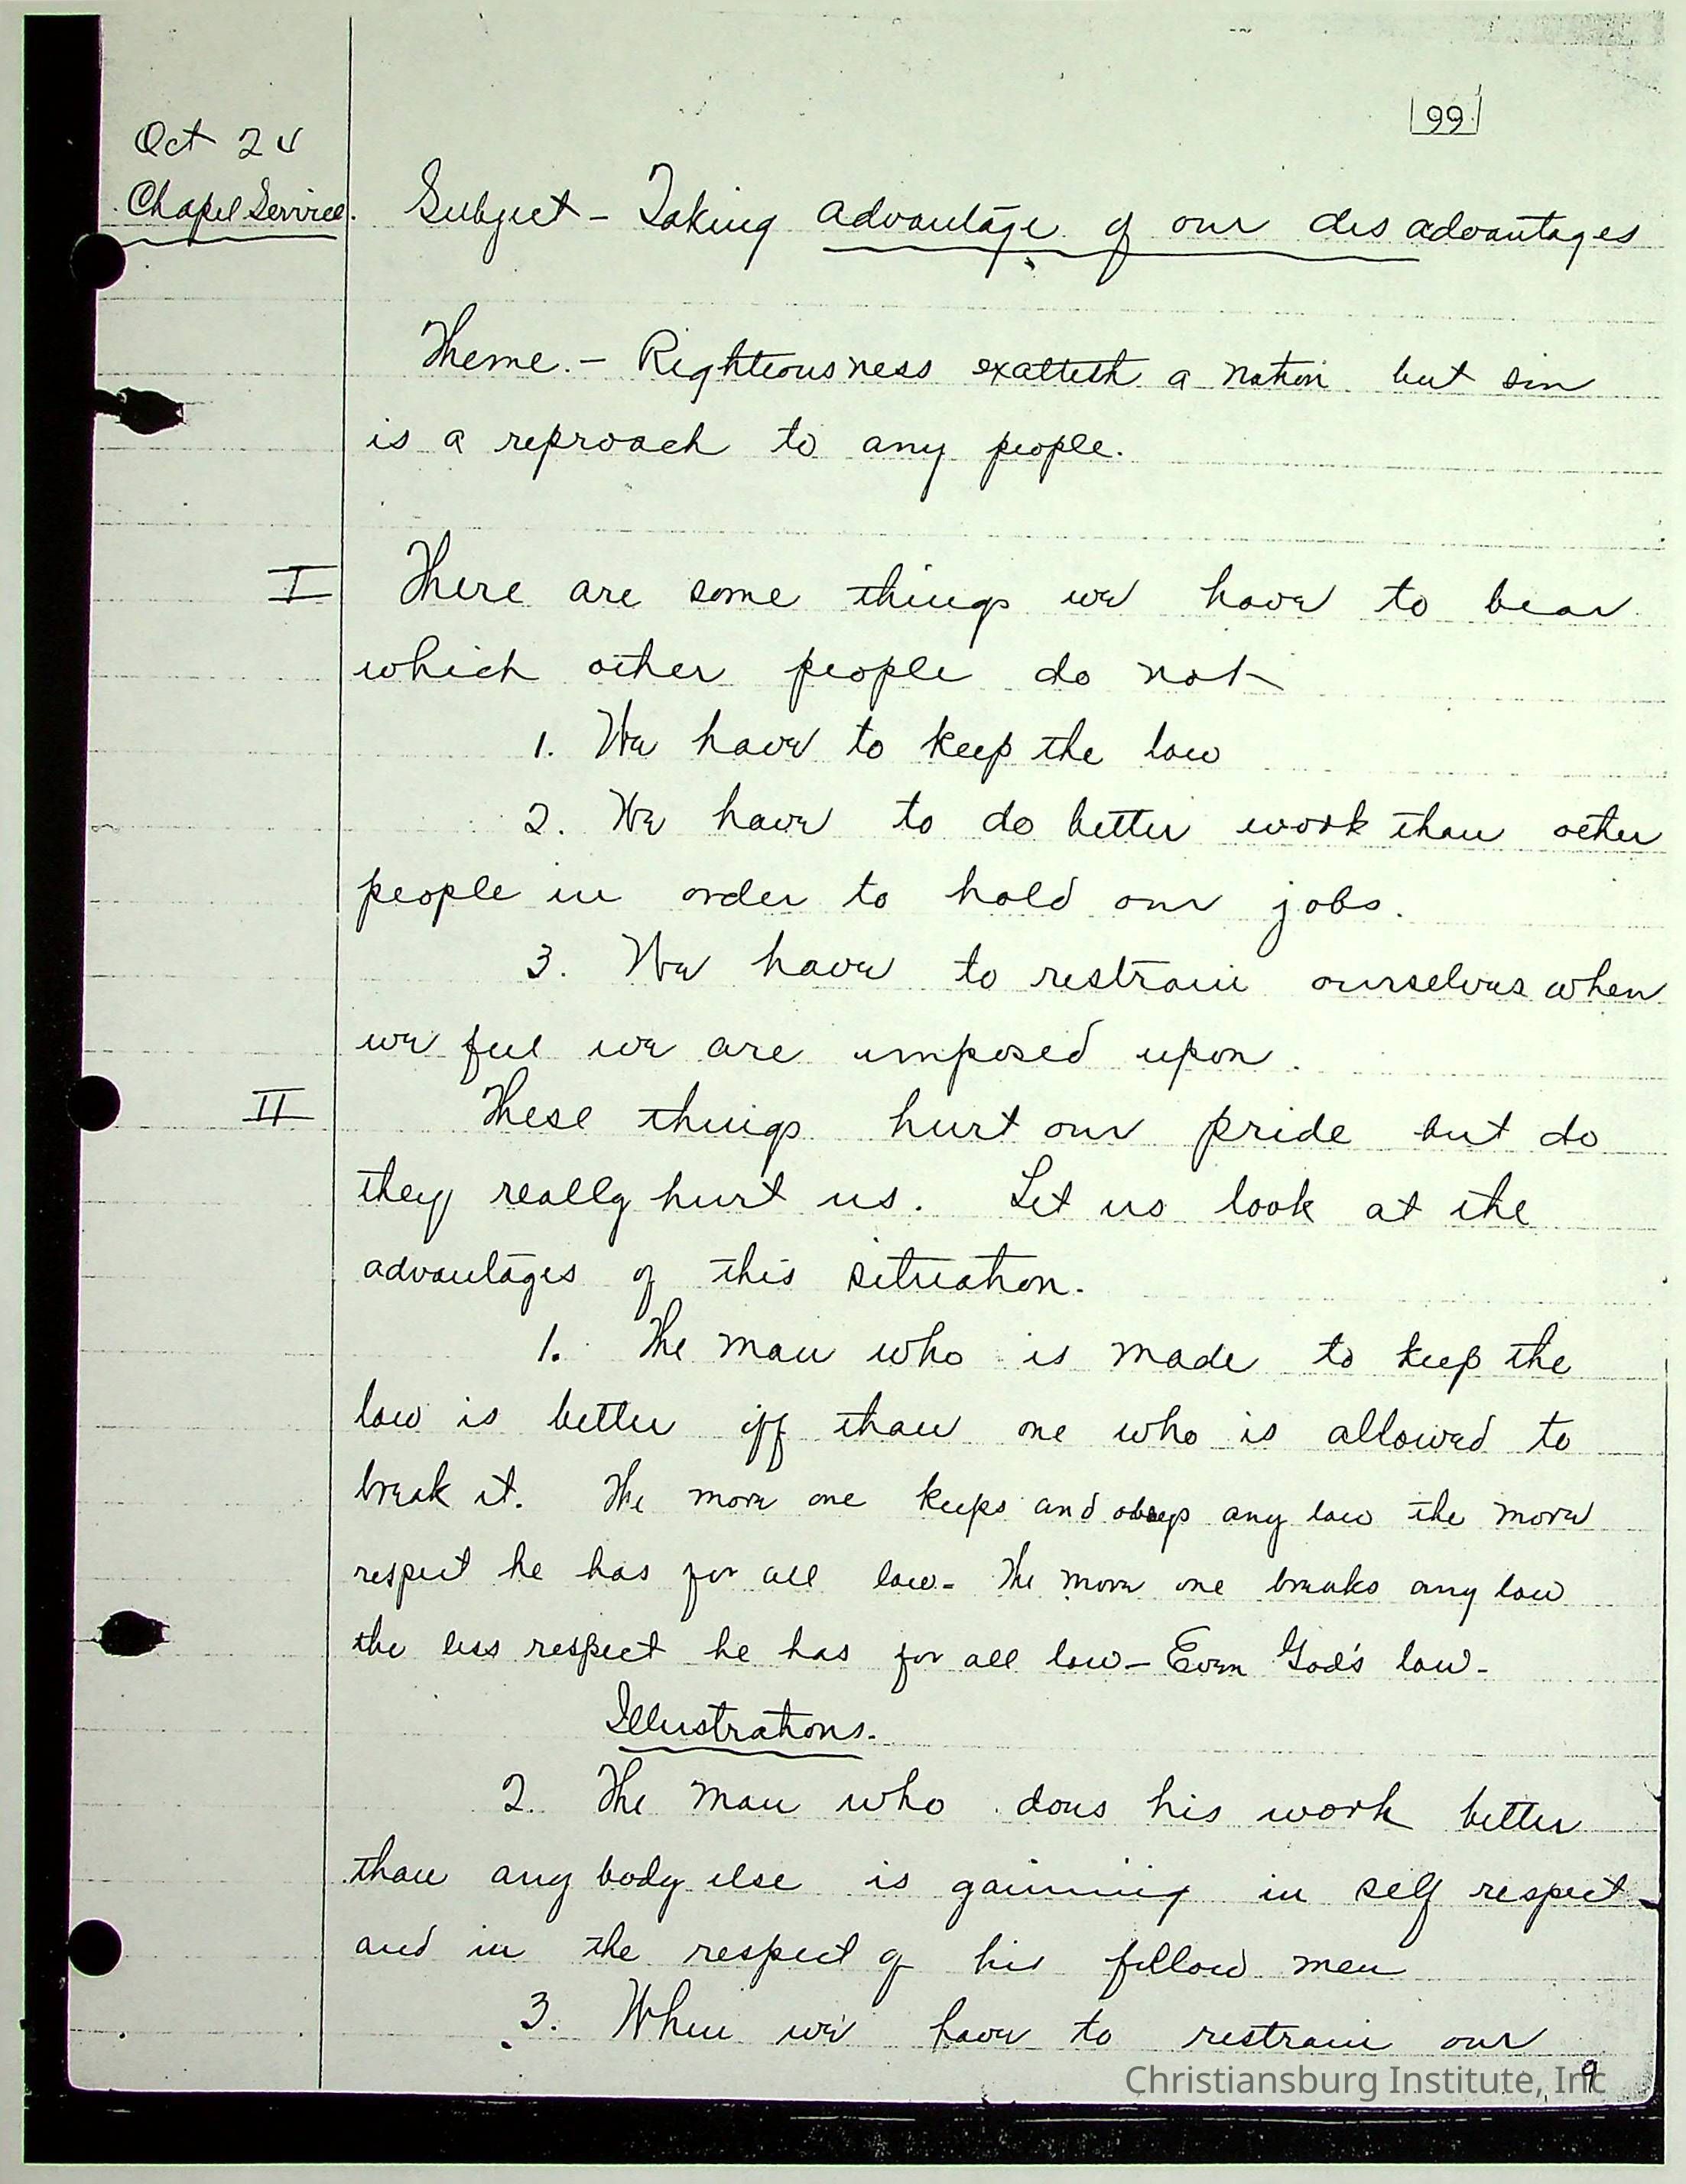 99
Oct 24
Chapel Service.
Subject - Taking advantage of our disadvantages
Theme. - Righteousness exalteth a nation but sin
is a reproach to any people.
I There are some things we have to bear
which other people do not
1. We have to keep the law
2. We have to do better work than other
people in order to hold our jobs.
3. We have to restrain ourselves when
we feel we are imposed upon.
II These things hurt our pride but do
they really hurt us. Let us look at the
advantages of this situation.
1. The man who is made to keep the
law is better off than one who is allowed to
break it. The more one keeps and obeys any law the more
respect he has for all law - The more one breaks any law
the less respect he has for all law - Even God's law -
Illustrations.
2. The man who does his work better
than any body else is gaining in self respect -
and in the respect of his fellow men
3. When we have to restrain our
9
Christiansburg Institute, Inc